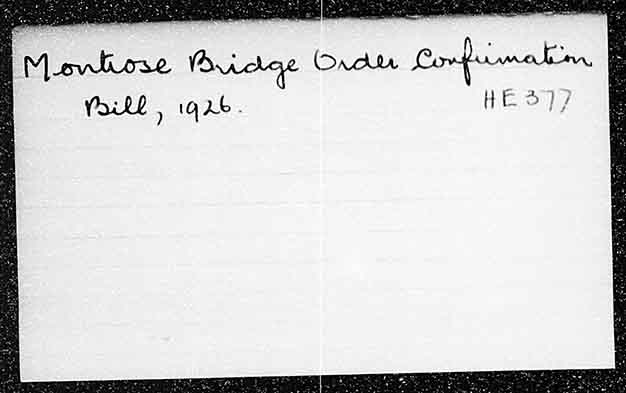 Montrose Bridge Order Confirmation
Bill, 1926.
HE377